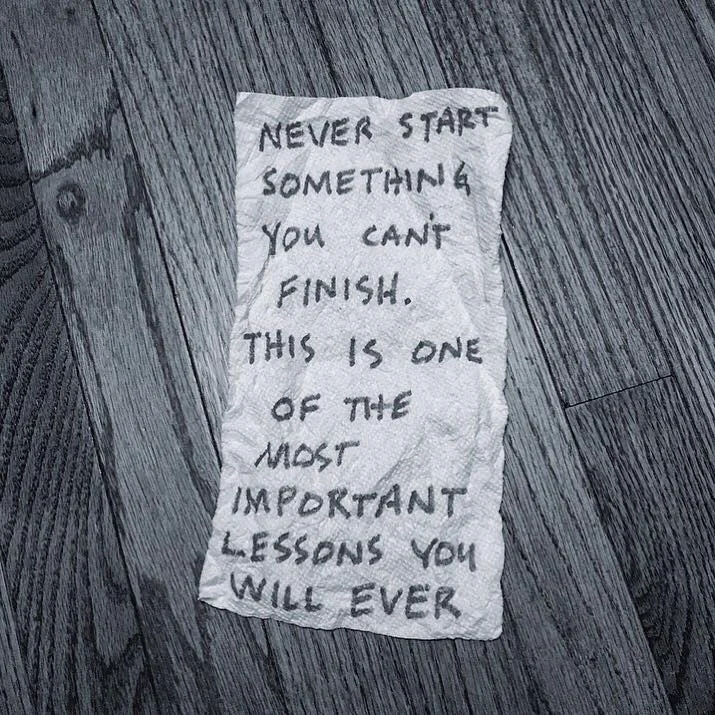 NEVER START
SOMETHING
YOU CAN'T
FINISH.
THIS IS ONE
OF THE
MOST
IMPORTANT
LESSONS YOU
WILL EVER